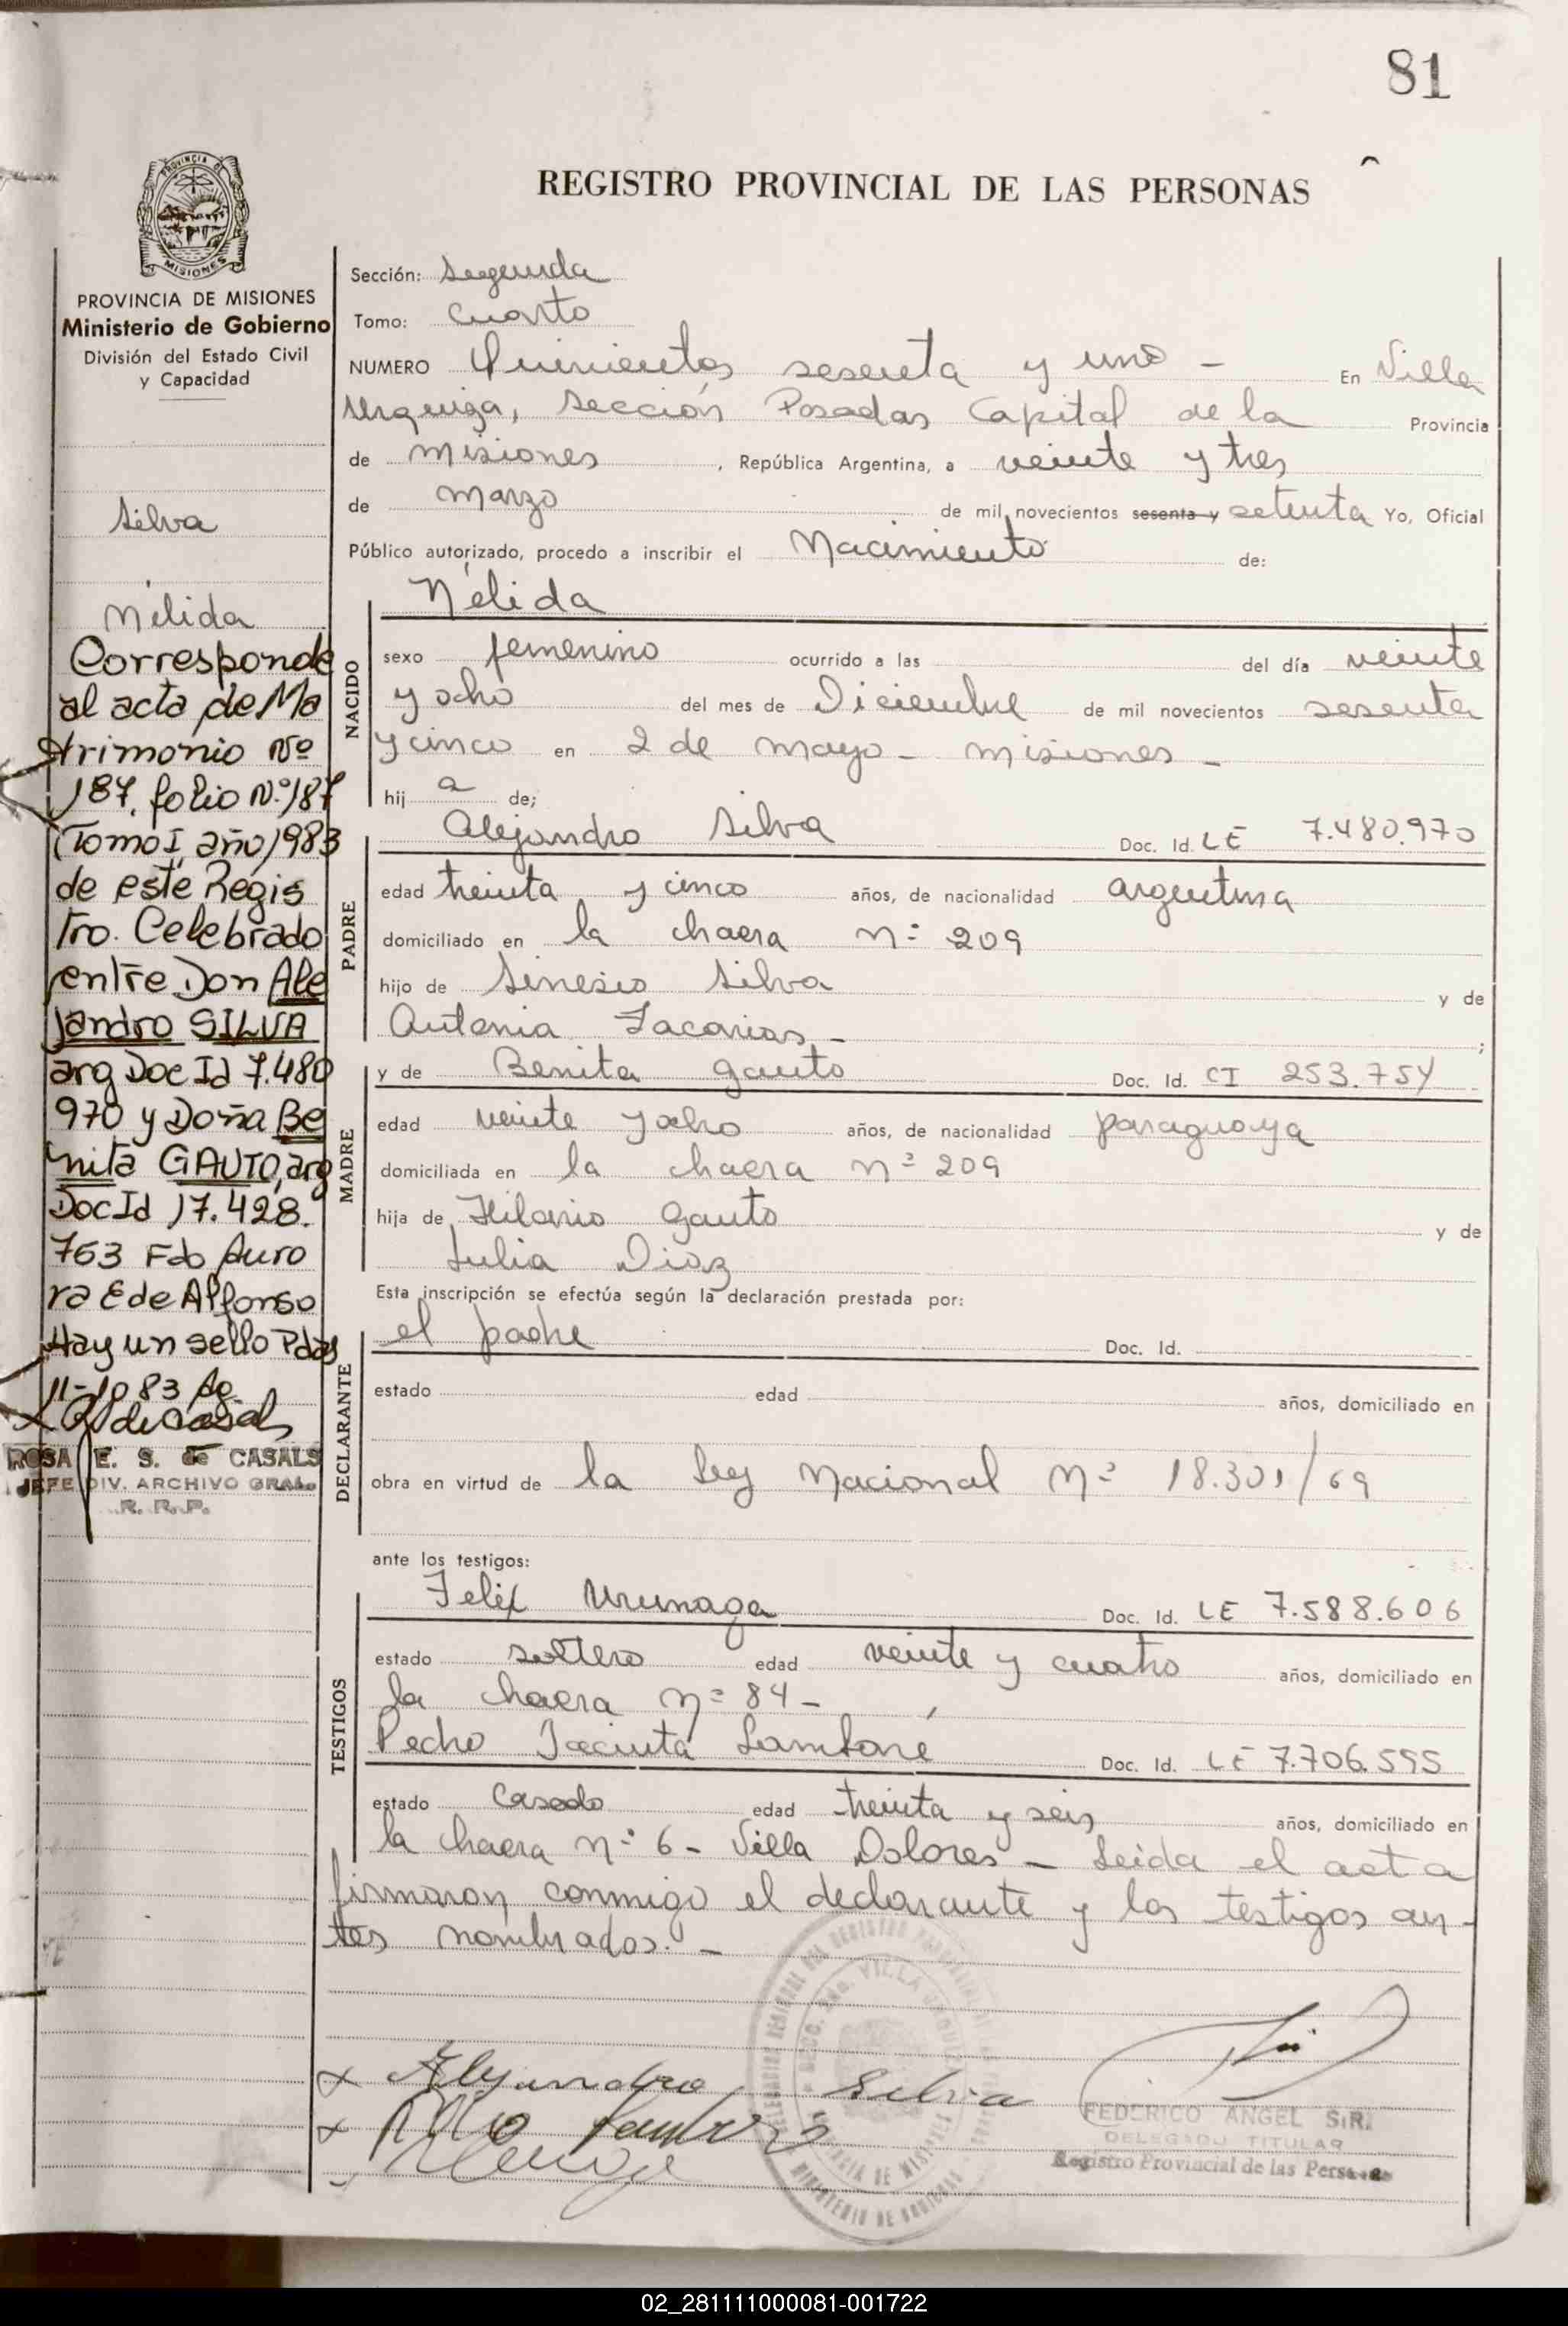 81
REGISTRO PROVINCIAL DE LAS PERSONAS
PROVINCIA DE MISIONES
Ministerio de Gobierno
División del Estado Civil
y Capacidad
Silva
Nélida
Corresponde
al acta de Ma
trimonio Nº
187, folio Nº 187
Tomo I, año 1983
de este Regis
tro. Celebrado
entre Don Ale
jandro SILVA
arg Doc Id 7.480
970 y Doña Be
nita GAUTO, arg
Doc Id 17.428.
763 Fdo Auro
ra E de Alfonso
Hay un sello Pdas
11-10 83
ROSA E. S. de CASALS
JEFE DIV. ARCHIVO GRAL.
R. R. P.
Sección: Segunda
Tomo: Cuarto
NUMERO Quinientos sesenta y uno - En Villa
Urquiza, Sección Posadas Capital de la Provincia
de Misiones, República Argentina, a veinte y tres
de Marzo de mil novecientos sesenta y setenta Yo, Oficial
Público autorizado, procedo a inscribir el Nacimiento de:
NACIDO
Nélida
sexo femenino ocurrido a las del día veinte
y ocho del mes de Diciembre de mil novecientos sesenta
y cinco en 2 de Mayo - Misiones -
hij a de;
PADRE
Alejandro Silva Doc. Id. LE 7.480.970
edad treinta y cinco años, de nacionalidad argentina
domiciliado en la chacra nº 209
hijo de Sinesio Silva y de
Antonia Zacarias - ;
MADRE
y de Benita Gauto Doc. Id. CI 253.754
edad veinte y ocho años, de nacionalidad paraguaya
domiciliada en la chacra nº 209
hija de Hilario Gauto y de
Julia Diaz
Esta inscripción se efectúa según la declaración prestada por:
DECLARANTE
el padre Doc. Id.
estado edad años, domiciliado en
obra en virtud de la Ley Nacional Nº 18.301/69
ante los testigos:
TESTIGOS
Felix Urunaga Doc. Id. LE 7.588.606
estado soltero edad veinte y cuatro años, domiciliado en
la chacra nº 84 -
Pedro Jacinta Doc. Id. LE 7.706.595
estado casado edad treinta y seis años, domiciliado en
la chacra nº 6 - Villa Dolores - Leida el acta
firmaron conmigo el declarante y los testigos an-
tes nombrados. -
Alejandro Silva
FEDERICO ANGEL
DELEGADO TITULAR
Registro Provincial de las Personas
02_281111000081-001722